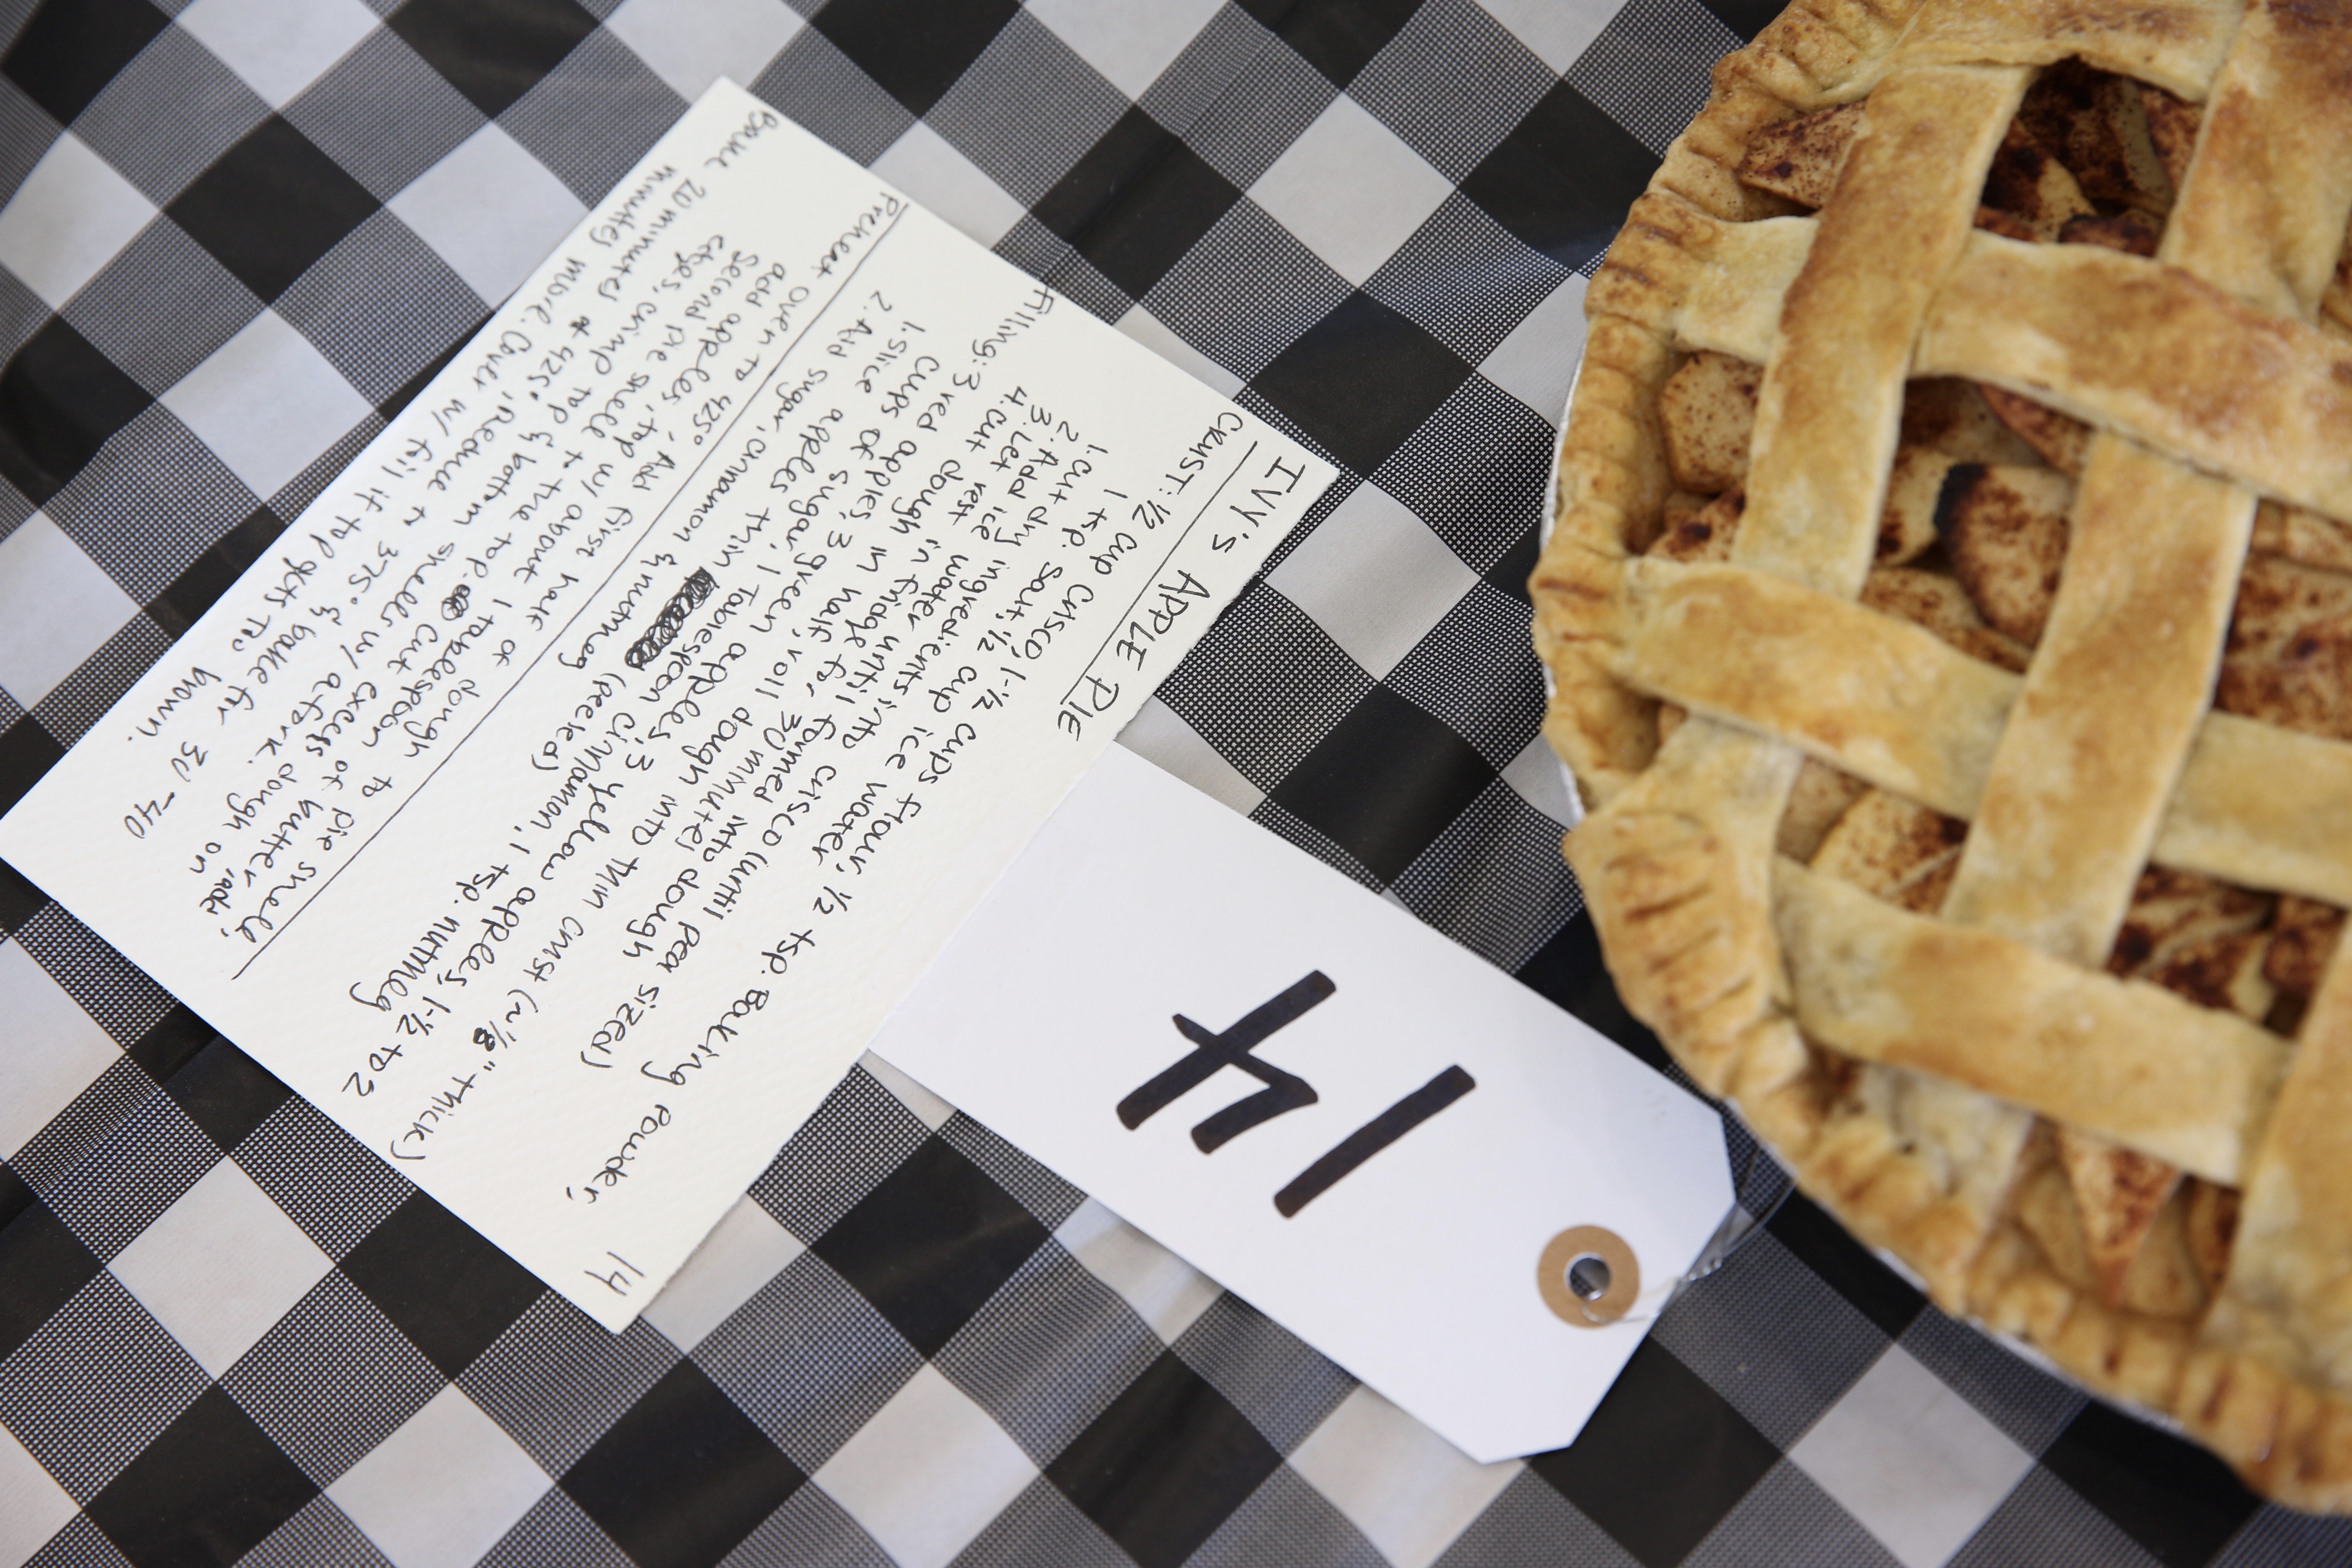 IVY'S APPLE PIE
CRUST: 1/2 cup Crisco, 1-1/2 cups flour, 1/2 tsp. Baking Powder,
1 tsp. Salt, 1/2 cup ice water
1. Cut dry ingredients into crisco (until pea sized)
2. Add ice water until formed into dough
3. Let rest in fridge for 30 minutes
4. Cut dough in half, roll dough into thin crust (~1/8" thick)
Filling: 3 red apples, 3 green apples, 3 yellow apples, 1-1/2 to 2
cups of sugar, 1 Tablespoon cinnamon, 1 tsp. nutmeg
1. Slice apples thin (peeled)
2. Add sugar, cinnamon & nutmeg
Preheat oven to 425°. Add first half of dough to pie shell.
add apples, top w/ about 1 tablespoon of butter, add
second pie shell to the top. Cut excess dough on
edges, crimp top & bottom shells w/ a fork.
Bake 20 minutes @ 425°, Reduce to 375° & bake for 30-40
minutes more. Cover w/ foil if top gets too brown.
14
14